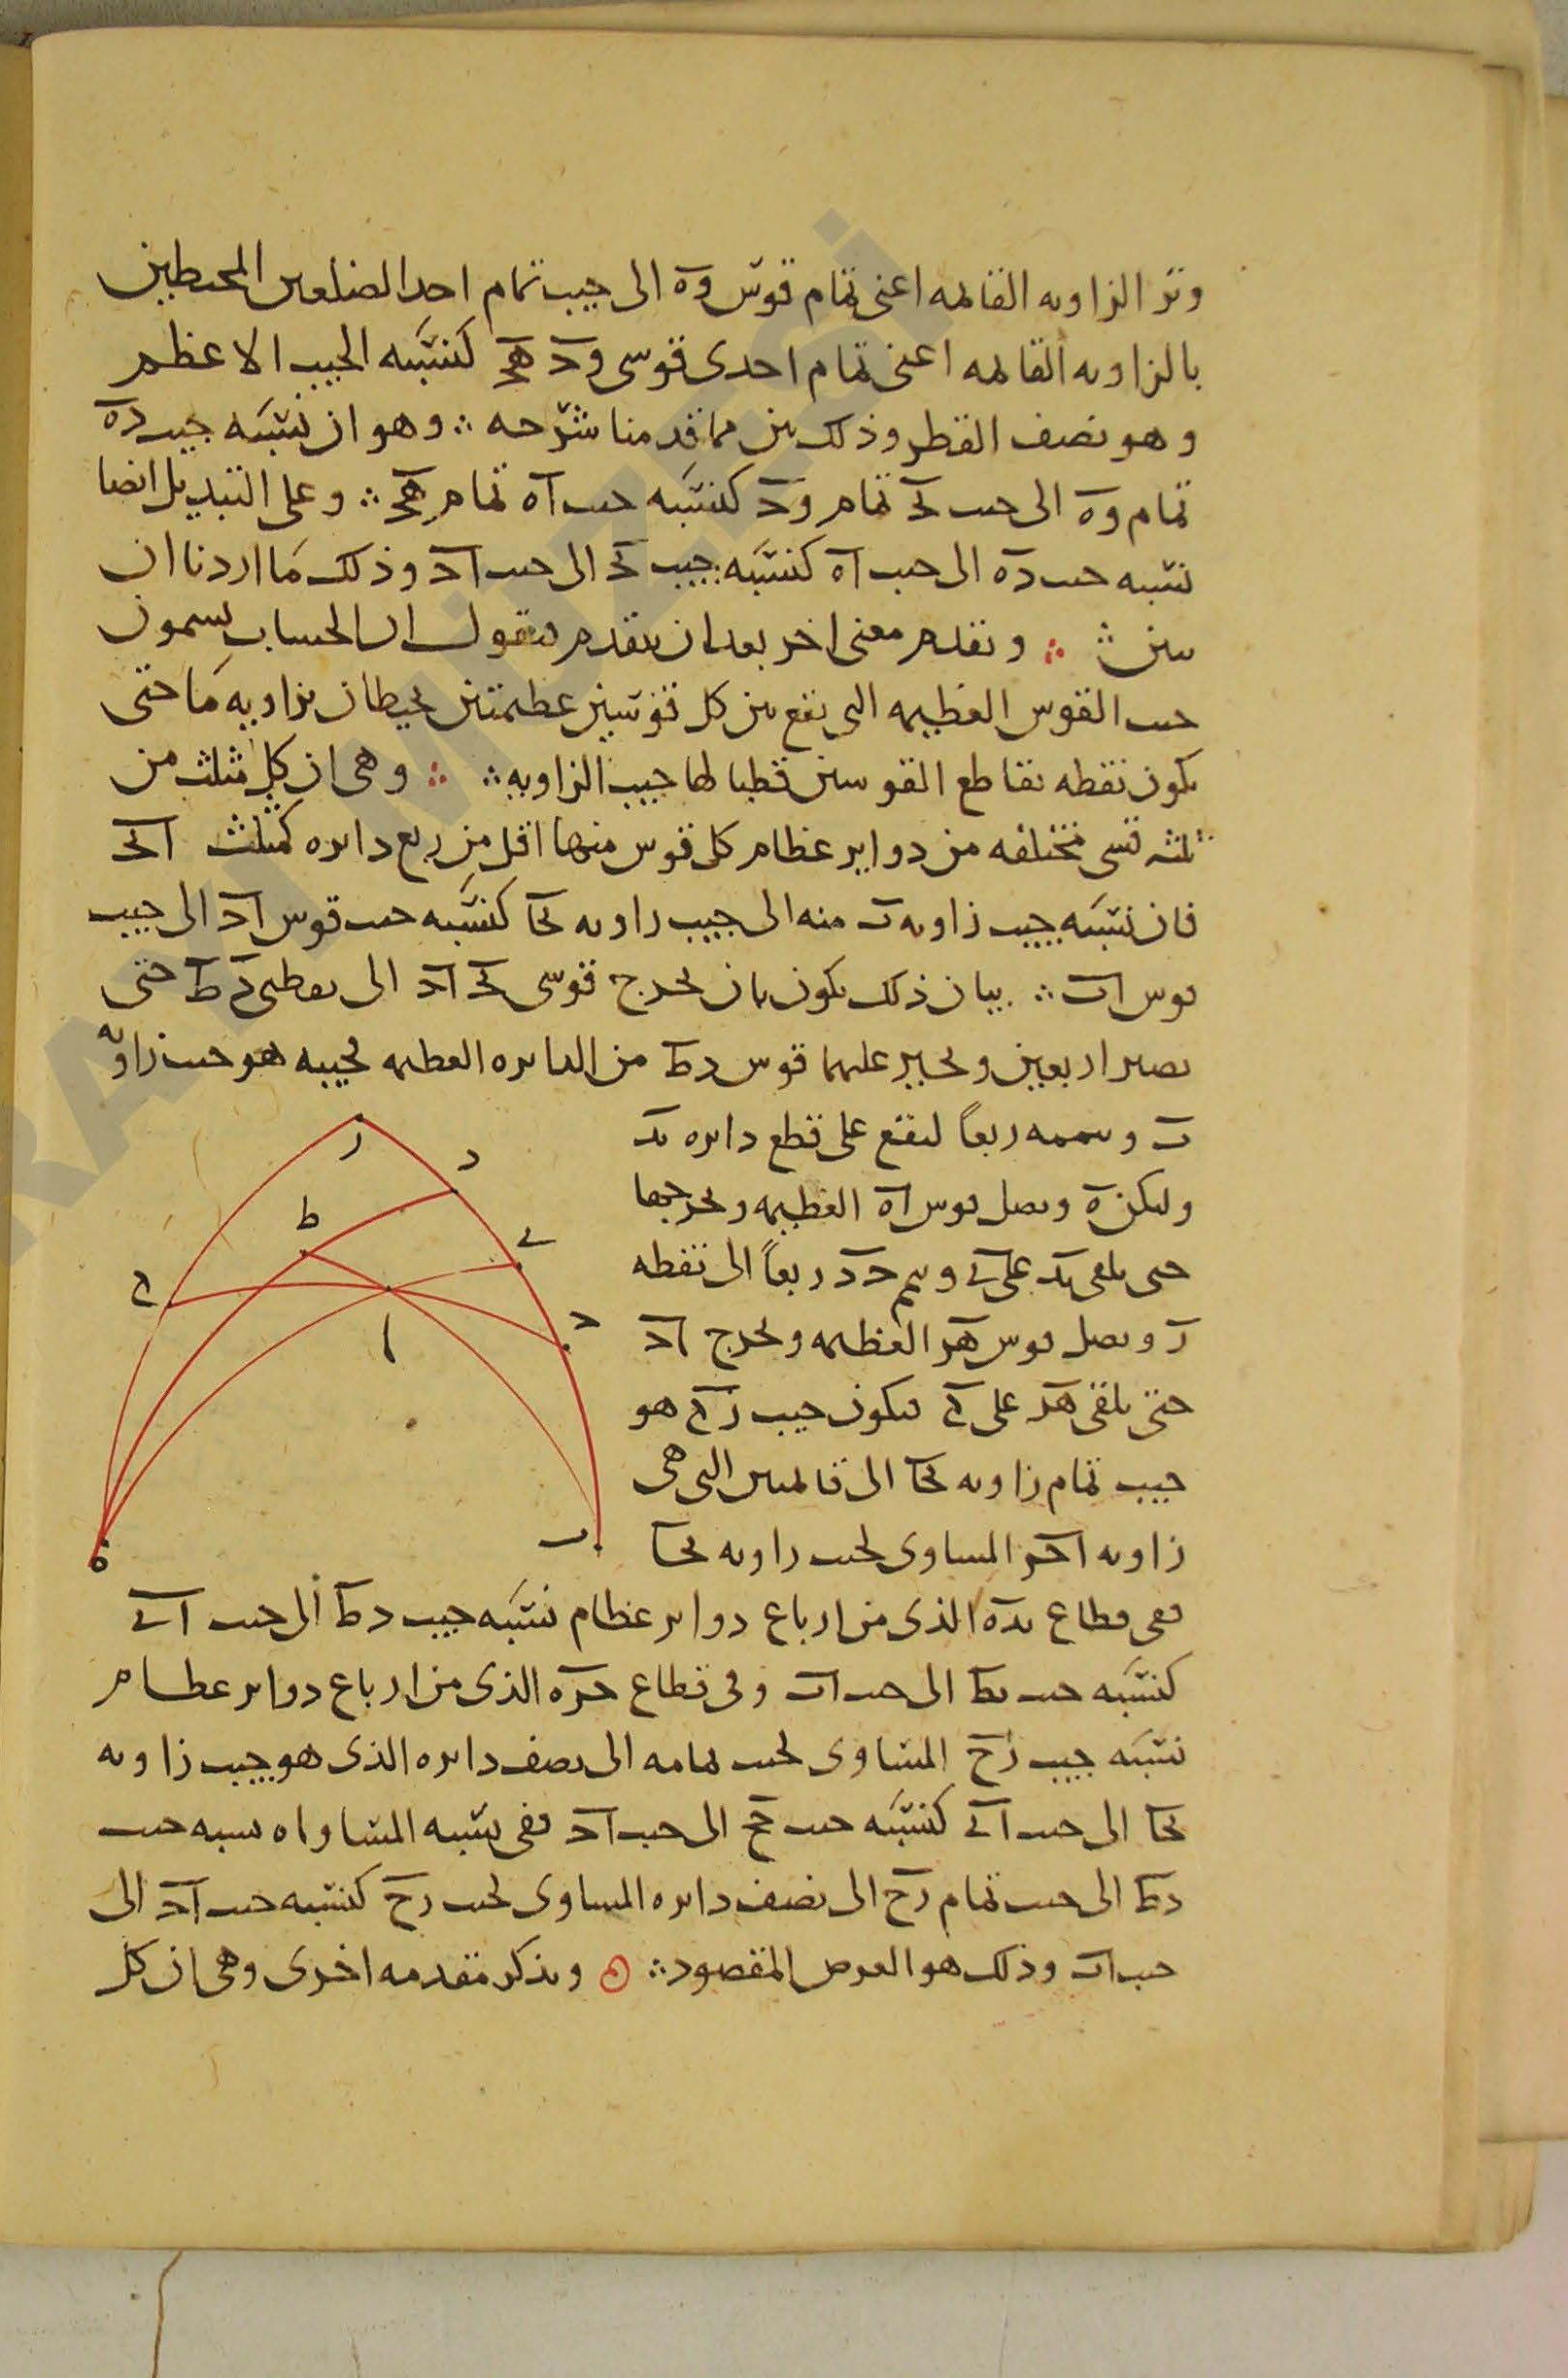 وتر الزاويه القائمه اعنى تمام قوس وه الى جيب تمام احد الضلعين المحيطين
بالزاويه القائمه اعنى تمام احدى قوسى ود هج كنسبه الجيب الاعظم
وهو نصف القطر وذلك بين مما قدمنا شرحه ؞ وهو ان نسبه جيب ده
تمام وه الى جيب تمام كنسبه جيب اه تمام هج ؞ وعلى التبديل ايضا
نسبه جيب ده الى جيب اه كنسبه جيب الى جيب وذلك ما اردنا ان
نبين ؞ ؞ ونقدم معنى اخر بعد ان نتقدم فنقول ان الحساب يسمون
جيب القوس العظيمه التى تقع بين كل قوسين عظيمتين يحيطان بزاويه ما حتى
يكون نقطه تقاطع القوسين قطبا لها جيب الزاويه ؞ ؞ وهى ان كل مثلث من
ثلثه قسى مختلفه من دواير عظام كل قوس منها اقل من ربع دايره كمثلث ابح
فان نسبه جيب زاويه ب منه الى جيب زاويه بحا كنسبه جيب قوس اح الى جيب
قوس اب ؞ بيان ذلك يكون بان نخرج قوسى الى نقطتى د ط حتى
يصير اربعين ونجيز عليهما قوس دط من الدايره العظيمه فجيبه هو جيب زاويه
ب ونتممه ربعا ليقع على قطع دايره بد
وليكن ه ونصل قوس اه العظيمه ونخرجها
حتى تلقى بد على ى ونتمم حد ربعا الى نقطه
ز ونصل قوس هز العظيمه ونخرج اح
حتى يلقى هز على ح فيكون جيب زح هو
جيب تمام زاويه بحا الى قائمتين التى هى
زاويه احز المساوى لجيب زاويه بحا
ففى قطاع بده الذى من ارباع دواير عظام نسبه جيب دط الى جيب اى
كنسبه جيب بط الى جيب اب وفى قطاع حزه الذى من ارباع دواير عظام
نسبه جيب زح المساوى لجيب تمامه الى نصف دايره الذى هو جيب زاويه
بحا الى جيب اى كنسبه جيب حح الى جيب اح ففى نسبه المساواه نسبه جيب
دط الى جيب تمام زح الى نصف دايره المساوى لجيب زح كنسبه جيب اح الى
جيب اب وذلك هو الغرض المقصود ؞ ونذكر مقدمه اخرى وهى ان كل
ز
د
ط
ى
ح
ح
ا
ب
ه